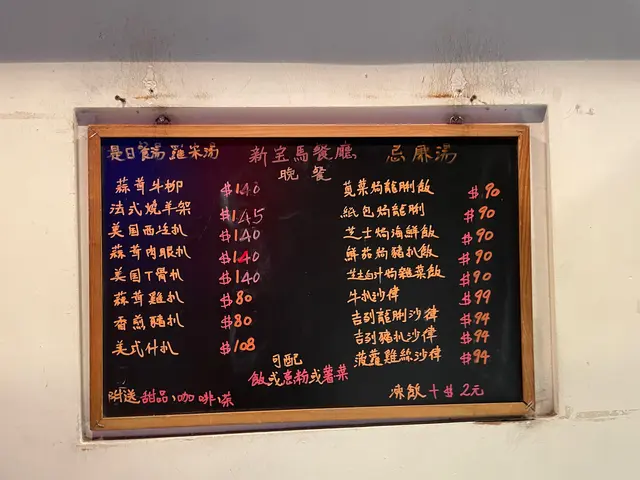 是日餐湯 雞茸湯
新宝馬餐廳
忌廉湯
晚餐
蒜茸牛柳 $140
法式燒羊架 $145
美国西冷扒 $140
蒜茸肉眼扒 $140
美国T骨扒 $140
蒜茸雞扒 $80
香煎豬扒 $80
美式什扒 $108
焗龍脷飯 $90
紙包焗龍脷 $90
芝士焗海鮮飯 $90
鮮茄焗豬扒飯 $90
汁焗雜菜飯 $90
牛扒沙律 $99
吉列龍脷沙律 $94
吉列豬扒沙律 $94
菠蘿雞絲沙律 $94
可配
飯或意粉或薯菜
附送甜品,咖啡,茶
凍飲+$2元